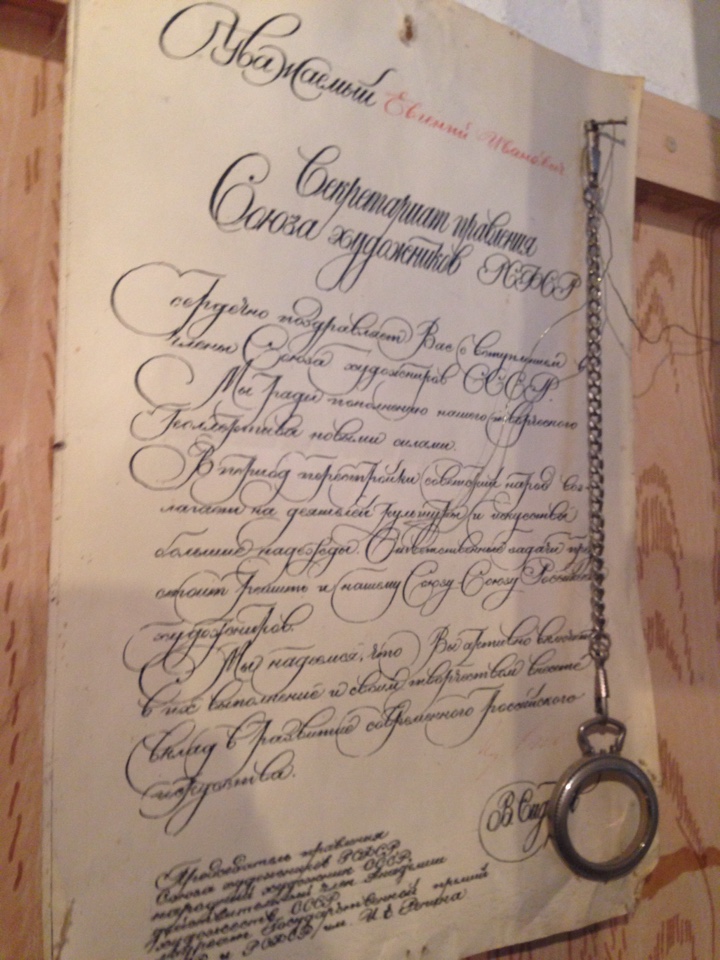 Уважаемый Евгений Иванович
Секретариат правления
Союза художников РСФСР
сердечно поздравляет Вас с вступлением в
члены Союза художников СССР.
Мы рады пополнению нашего творческого
коллектива новыми силами.
В период перестройки советский народ воз-
лагает на деятелей культуры и искусства
большие надежды. Ответственные задачи пред-
стоит решить и нашему Союзу - Союзу Российских
художников.
Мы надеемся, что Вы активно включитесь
в их выполнение и своим творчеством внесете
вклад в развитие современного российского
искусства.
В. Сид
Председатель правления
Союза художников РСФСР,
народный художник СССР,
действительный член Академии
художеств СССР,
лауреат Государственной премии
и РСФСР им. И. Е. Репина